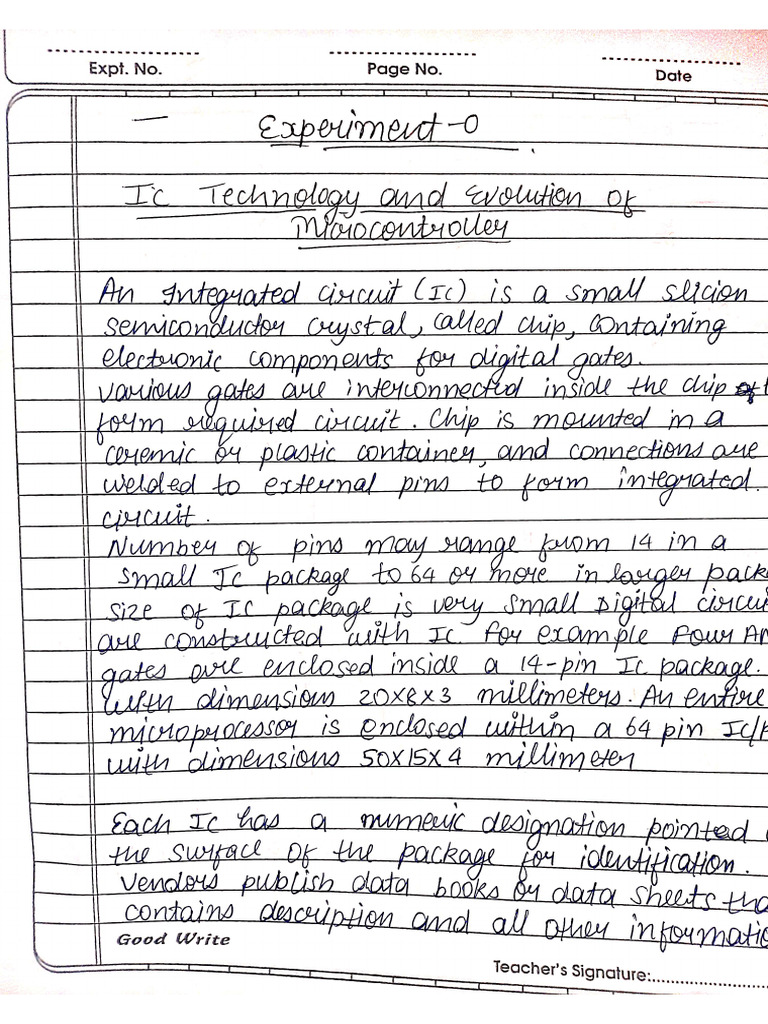 Expt. No.
Page No.
Date
Experiment-0
IC Technology and Evolution of
Microcontroller
An Integrated circuit (IC) is a small slicion
semiconductor crystal, called chip, containing
electronic components for digital gates.
various gates are interconnected inside the chip
form required circuit. Chip is mounted in a
ceremic or plastic container, and connections are
welded to external pins to form integrated.
circuit.
Number of pins may range from 14 in a
small IC package to 64 or more in larger packa
size of IC package is very small Digital circui
are constructed with IC for example Four AN
gates are enclosed inside a 14-pin IC package.
with dimensions 20x8x3 millimeters. An entire
microprocessor is enclosed within a 64 pin IC/P
with dimensions 50x15x4 millimeter
Each IC has a numeric designation pointed
the surface of the package for identification.
Vendors publish data books or data sheets tha
contains description and all other informatio
Good Write
Teacher's Signature: